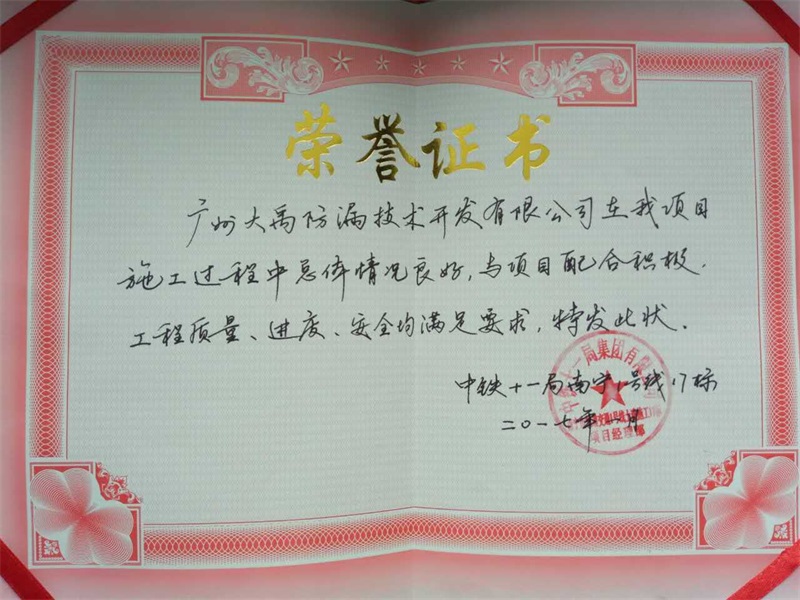 荣誉证书
广州大禹防漏技术开发有限公司在我项目
施工过程中总体情况良好,与项目配合积极.
工程质量、进度、安全均满足要求,特发此状.
中铁十一局南宁1号线17标
二〇一七年 月
十一局集团有限公司
项目经理部